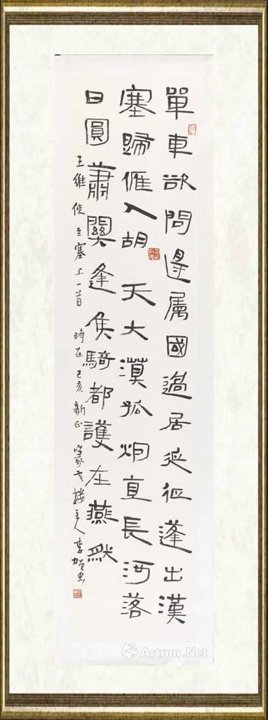 單車欲問邊屬國過居延征蓬出漢
塞歸雁入胡天大漠孤烟直長河落
日圓蕭關逢侯騎都護在燕然
王維使至塞上一首 時在己亥新正 主人李
Artron.Net